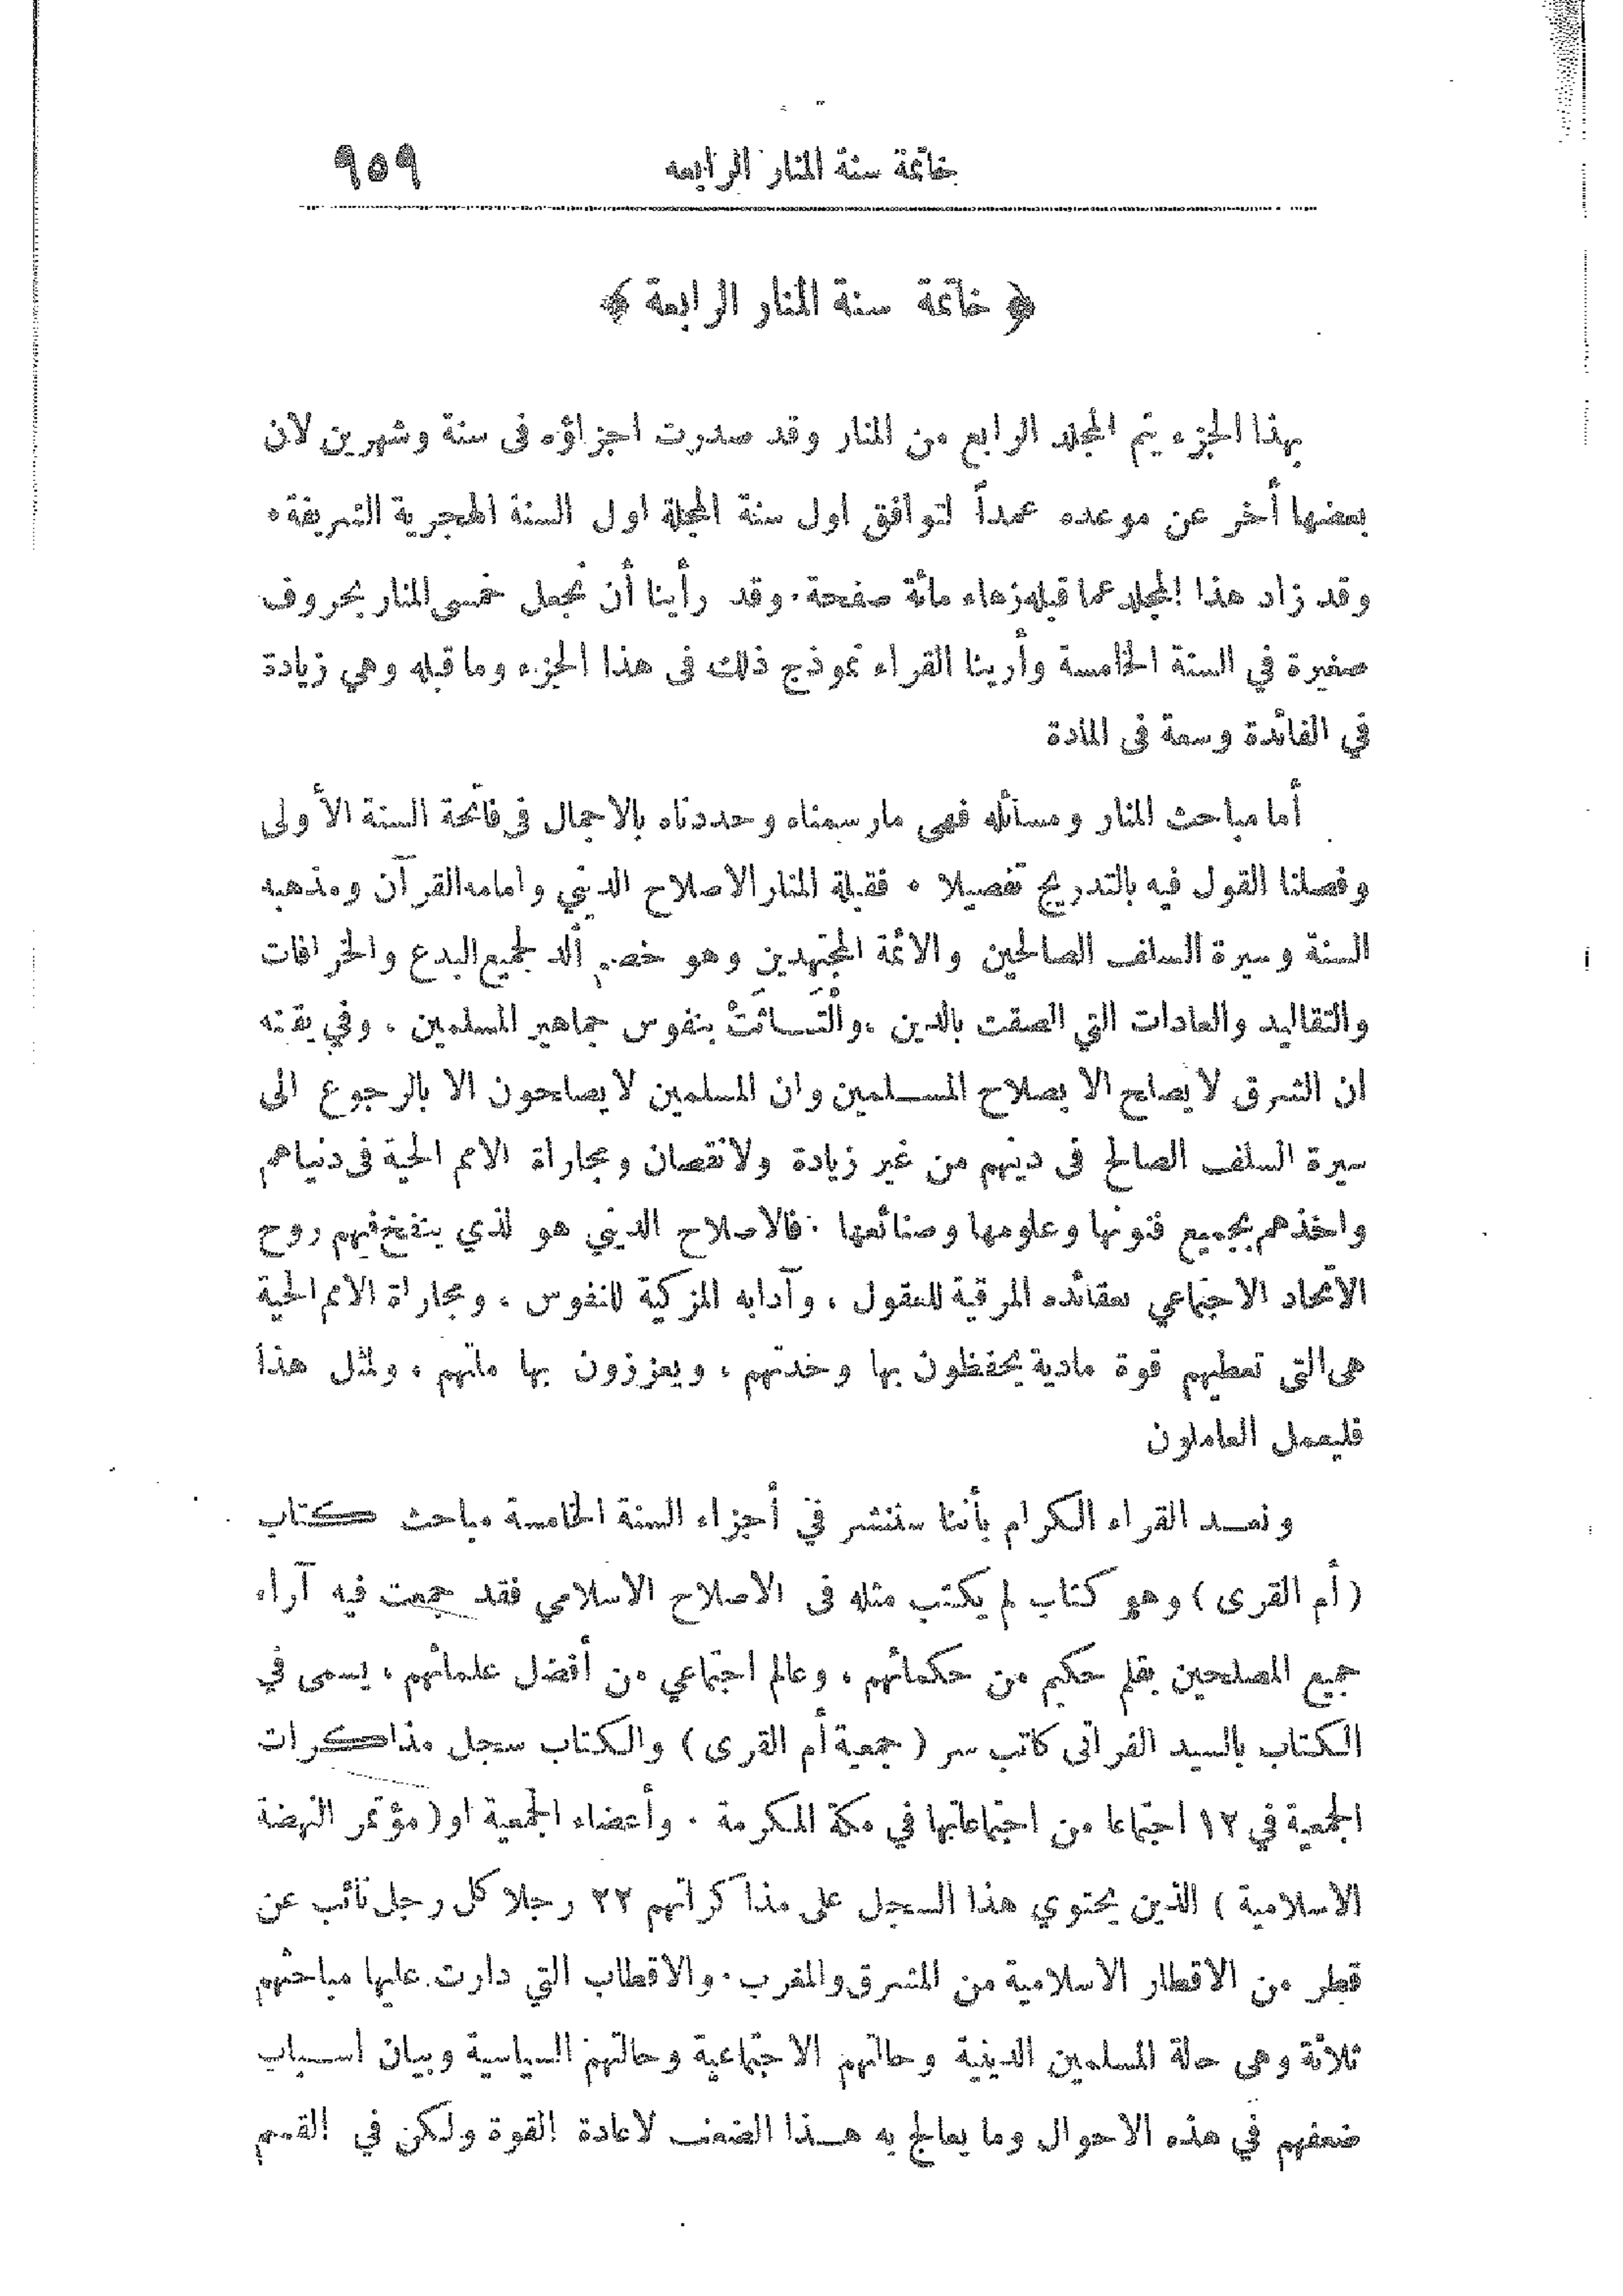 خاتمة سنة المنار الرابعه ٩٥٩
﴿ خاتمة سنة المنار الرابعة ﴾
بهذا الجزء يتم المجلد الرابع من المنار وقد صدرت اجزاؤه فى سنة وشهرين لان
بعضها أخر عن موعده عمداً لتوافق اول سنة المجلة اول السنة الهجرية الشريفة ٠
وقد زاد هذا المجلد عما قبله زهاء مائة صفحة ٠ وقد رأينا أن نجعل خمسي المنار بحروف
صغيرة في السنة الخامسة وأرينا القراء نموذج ذلك فى هذا الجزء وما قبله وهي زيادة
في الفائدة وسعة فى المادة
أما مباحث المنار ومسائله فهى مارسمناه وحددناه بالاجمال فى فاتحة السنة الأولى
وفصلنا القول فيه بالتدريج تفصيلا ٠ فقبلة المنار الاصلاح الديني وامامه القرآن ومذهبه
السنة وسيرة السلف الصالحين والائمة المجتهدين وهو خصم ألد لجميع البدع والخرافات
والتقاليد والعادات التي الصقت بالدين ، والْتَـاثَتْ بنفوس جماهير المسلمين ، وفي يقينه
ان الشرق لا يصلح الا بصلاح المسلمين وان المسلمين لا يصلحون الا بالرجوع الى
سيرة السلف الصالح فى دينهم من غير زيادة ولا نقصان ومجاراة الامم الحية فى دنياهم
واخذهم بجميع فنونها وعلومها وصنائعها ٠ فالاصلاح الديني هو لذي ينفخ فيهم روح
الاتحاد الاجتماعي بعقائده المرقية للعقول ، وآدابه المزكية للنفوس ، ومجاراة الامم الحية
هى التى تعطيهم قوة مادية يحفظون بها وحدتهم ، ويعززون بها ملتهم ، ولمثل هذا
فليعمل العاملون
ونعد القراء الكرام بأننا سننشر في أجزاء السنة الخامسة مباحث كتاب
( أم القرى ) وهو كتاب لم يكتب مثله فى الاصلاح الاسلامي فقد جمعت فيه آراء
جميع المصلحين بقلم حكيم من حكمائهم ، وعالم اجتماعي من أفضل علمائهم ، يسمى في
الكتاب بالسيد الفراتى كاتب سر ( جمعية أم القرى ) والكتاب سجل مذاكرات
الجمعية في ١٢ اجتماعا من اجتماعاتها في مكة المكرمة ٠ وأعضاء الجمعية او ( مؤتمر النهضة
الاسلامية ) الذين يحتوي هذا السجل على مذاكراتهم ٢٢ رجلا كل رجل نائب عن
قطر من الاقطار الاسلامية من المشرق والمغرب ٠ والاقطاب التي دارت عليها مباحثهم
ثلاثة وهى حالة المسلمين الدينية وحالتهم الاجتماعية وحالتهم السياسية وبيان اسباب
ضعفهم في هذه الاحوال وما يعالج به هذا الضعف لاعادة القوة ولكن في القسم